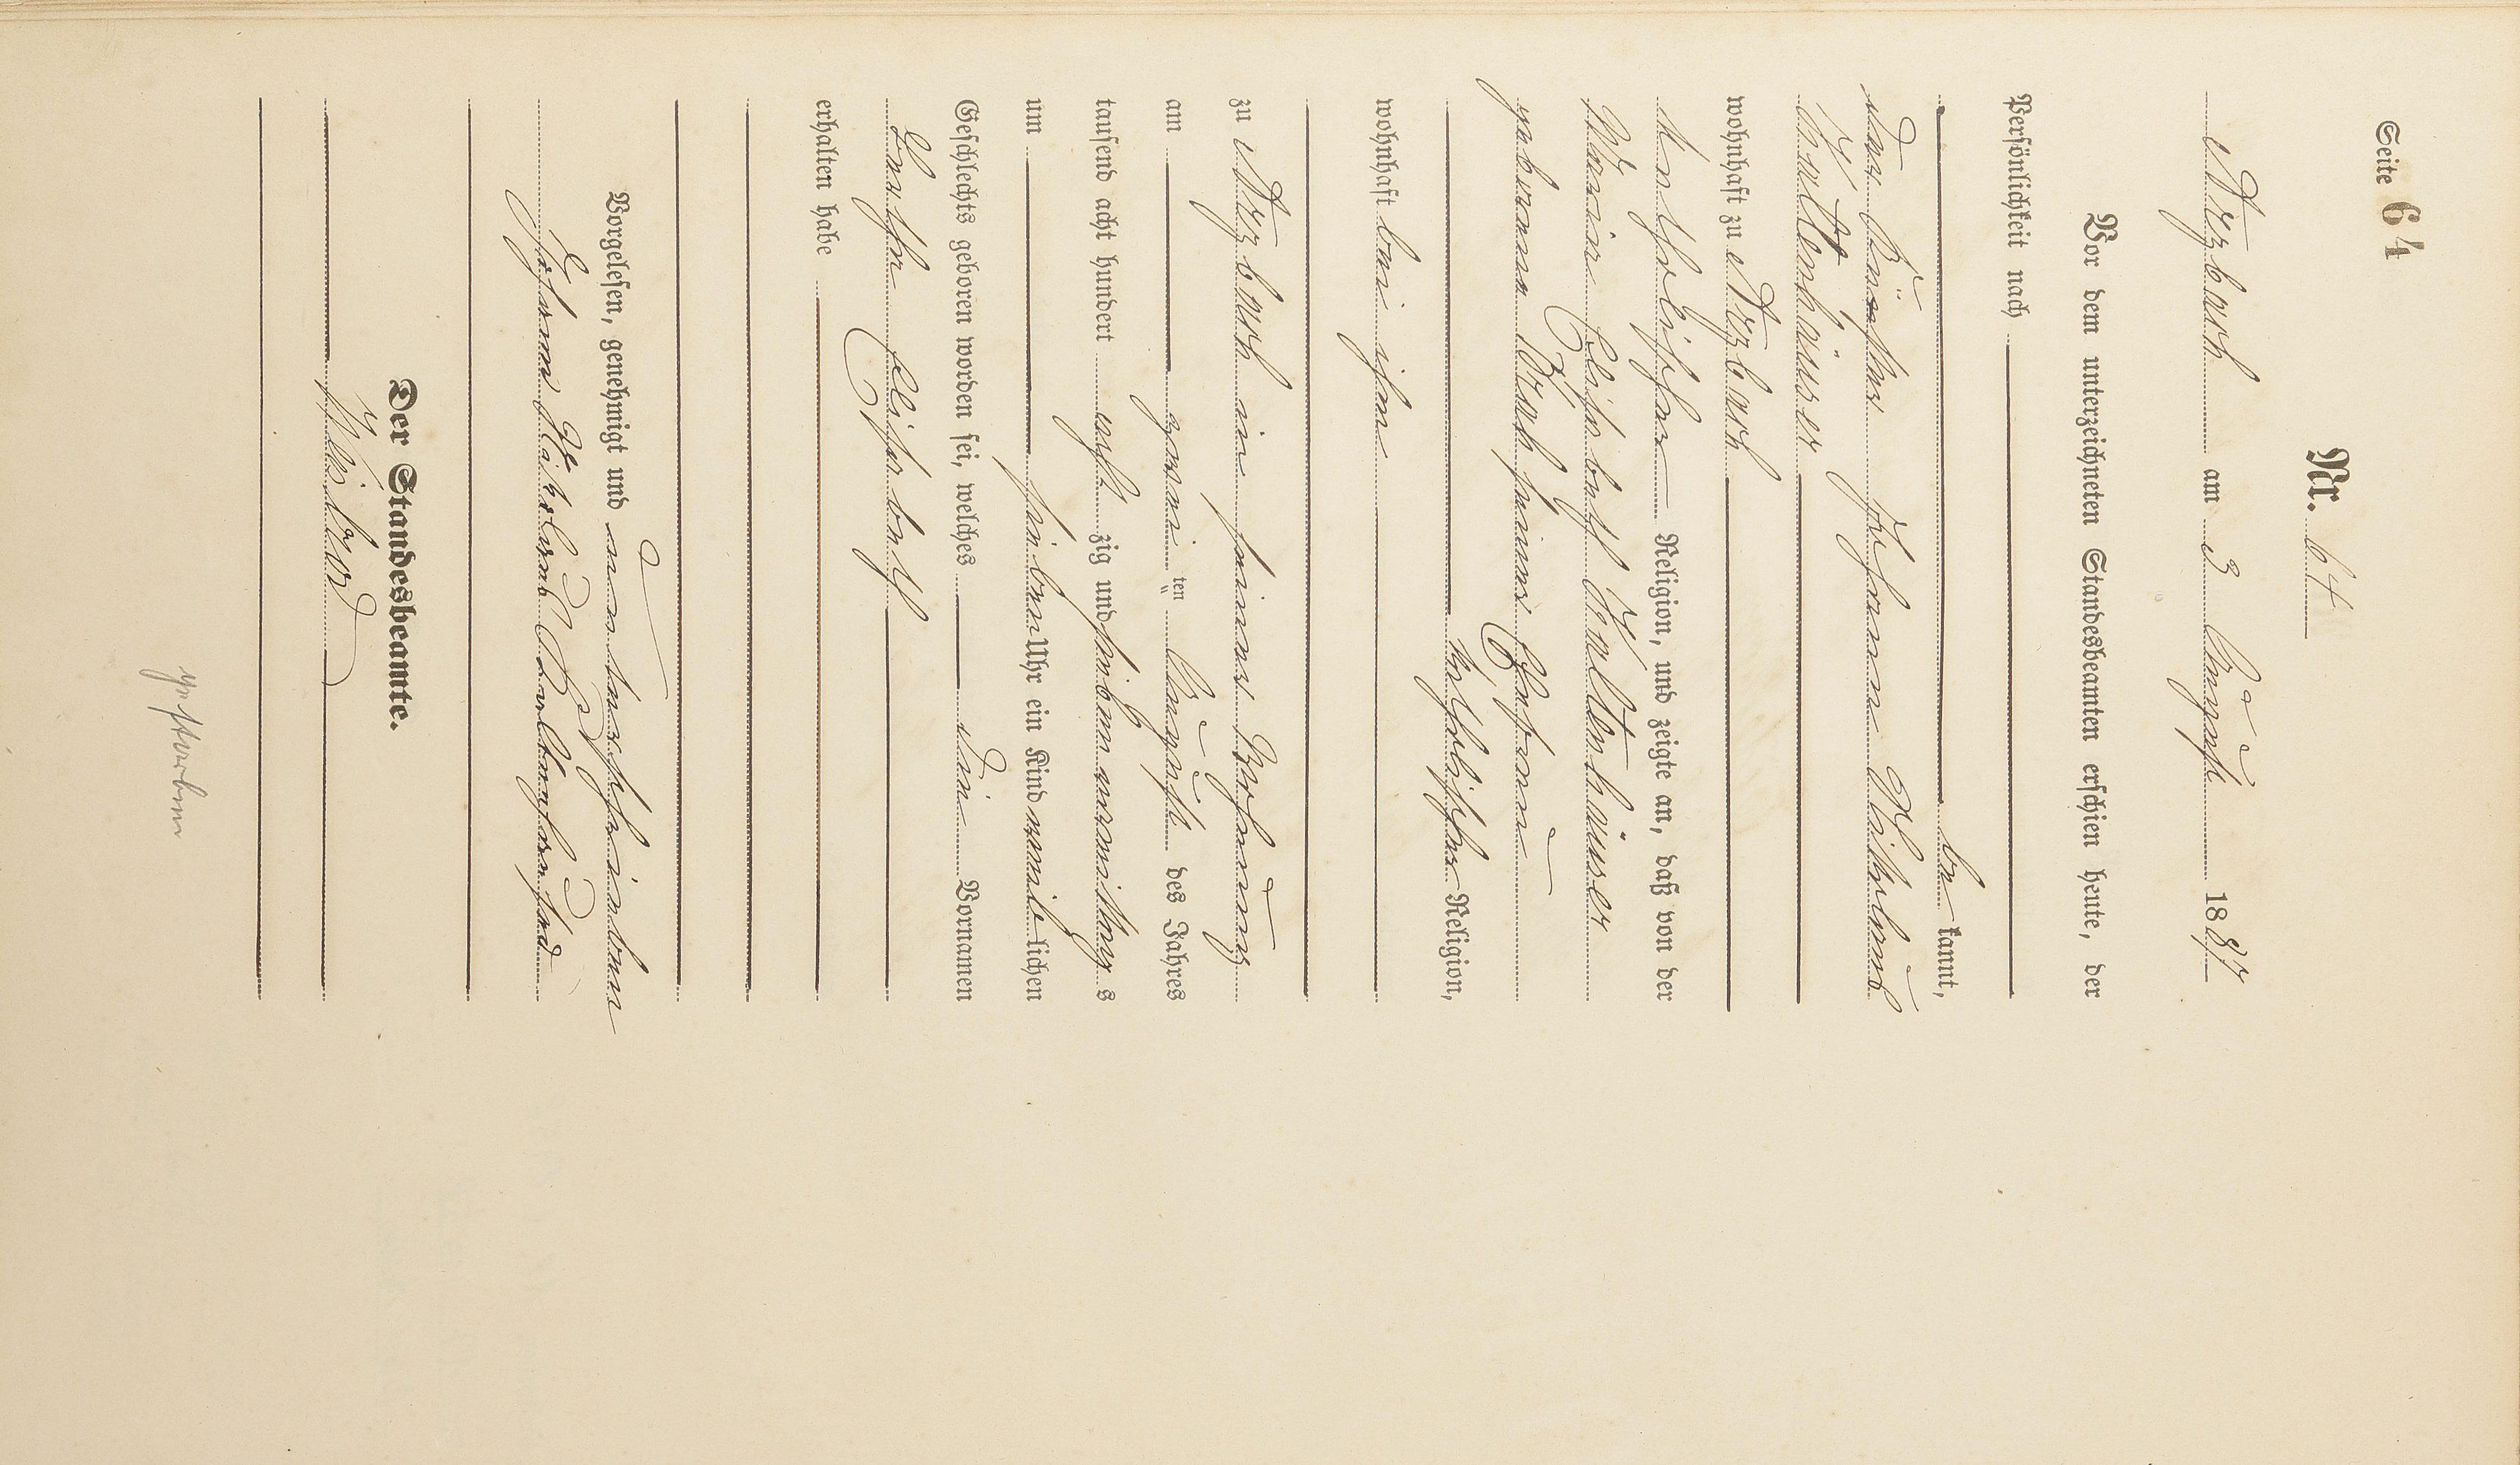 Seite 64
Nr. 64
Arzbach am 3 August 1887
Vor dem unterzeichneten Standesbeamten erschien heute, der
Persönlichkeit nach
be kannt,
der Bäcker Johann Nikolaus
Kaltenhäuser
wohnhaft zu Arzbach
katholischer Religion, und zeigte an, daß von der
Maria Elisabeth Kaltenhäuser
geborene seiner Ehefrau
katholischer Religion,
wohnhaft bei ihm
zu Arzbach in seiner Wohnung
am zweiten August des Jahres
tausend acht hundert acht zig und sieben Vormittag s
um sieben Uhr ein Kind weib lichen
Geschlechts geboren worden sei, welches die Vornamen
Elisabeth
erhalten habe
Vorgelesen, genehmigt und unterschrieben
Johann Nikolaus Kaltenhäuser
Der Standesbeamte.
gestorben